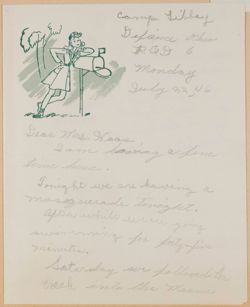 Camp Libbey
Defiance Ohio
R.O.D 6
Monday
July 22, 46
Dear Mrs.
I am having a fine
time here.
Tonight we are having a
masquerade tonight.
After while we are going
swimming for forty-five
minutes.
Saturday we
into the